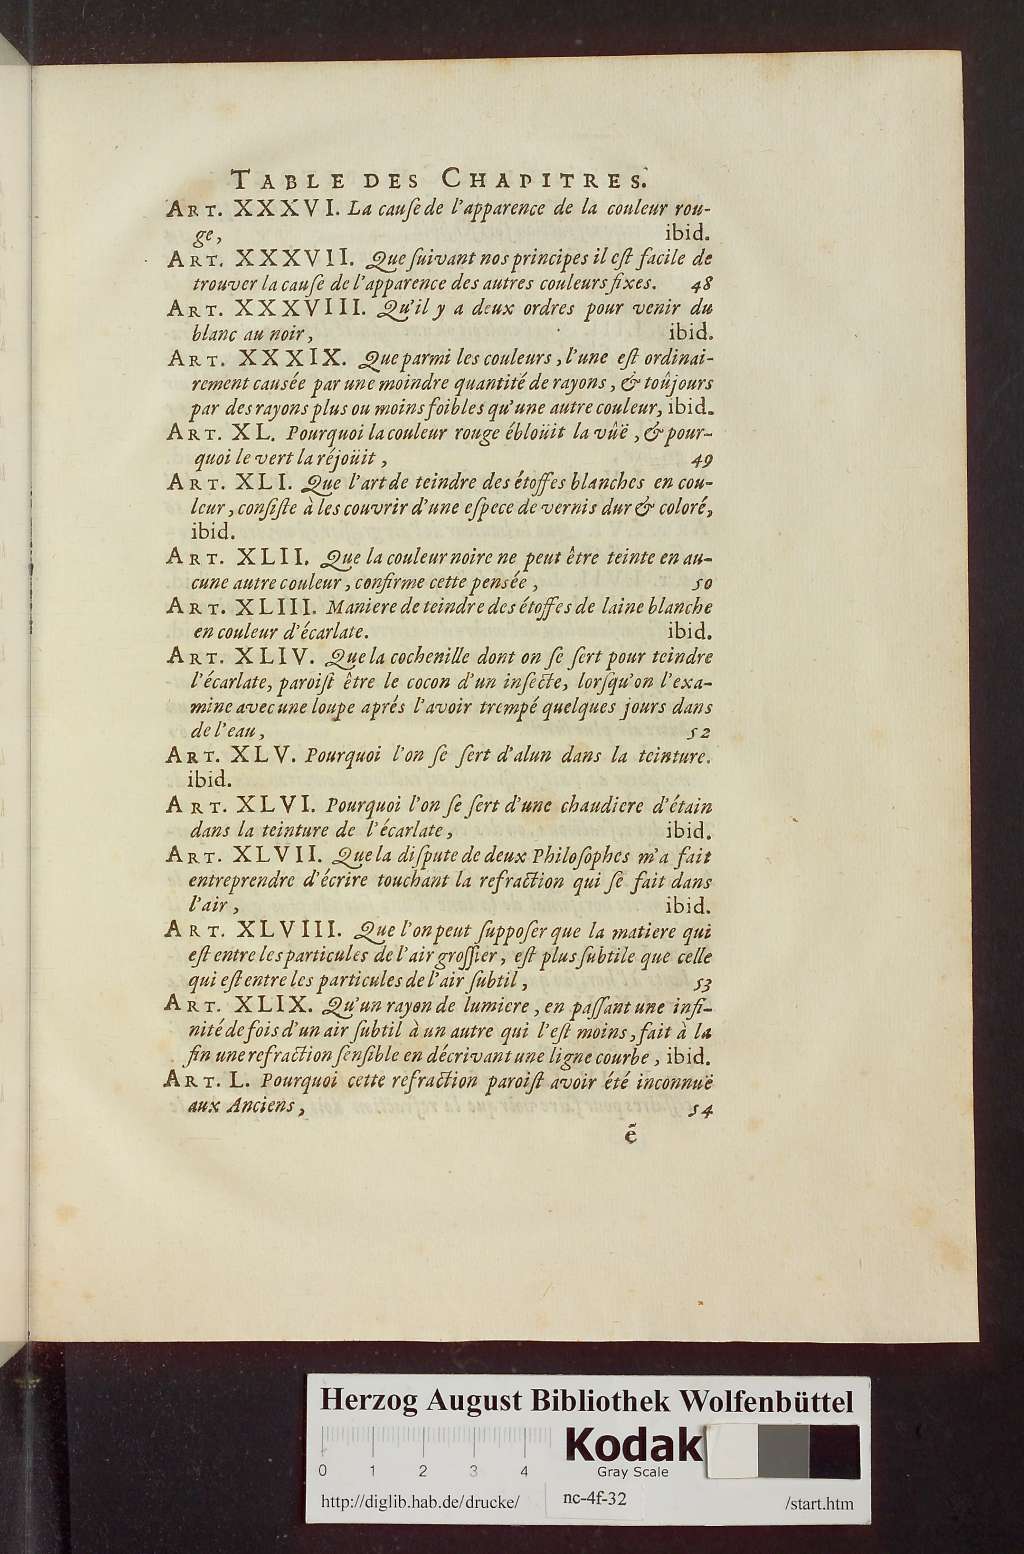 TABLE DES CHAPITRES.
ART. XXXVI. La cauſe de l'apparence de la couleur rou-
ge, ibid.
ART. XXXVII. Que ſuivant nos principes il eſt facile de
trouver la cauſe de l'apparence des autres couleurs fixes. 48
ART. XXXVIII. Qu'il y a deux ordres pour venir du
blanc au noir, ibid.
ART. XXXIX. Que parmi les couleurs, l'une eſt ordinai-
rement causée par une moindre quantité de rayons, & toûjours
par des rayons plus ou moins foibles qu'une autre couleur, ibid.
ART. XL. Pourquoi la couleur rouge ébloüit la vûë, & pour-
quoi le vert la réjoüit, 49
ART. XLI. Que l'art de teindre des étoffes blanches en cou-
leur, conſiſte à les couvrir d'une eſpece de vernis dur & coloré,
ibid.
ART. XLII. Que la couleur noire ne peut être teinte en au-
cune autre couleur, confirme cette pensée, 50
ART. XLIII. Maniere de teindre des étoffes de laine blanche
en couleur d'écarlate. ibid.
ART. XLIV. Que la cochenille dont on ſe ſert pour teindre
l'écarlate, paroiſt être le cocon d'un inſecte, lorſqu'on l'exa-
mine avec une loupe aprés l'avoir trempé quelques jours dans
de l'eau, 52
ART. XLV. Pourquoi l'on ſe ſert d'alun dans la teinture.
ibid.
ART. XLVI. Pourquoi l'on ſe ſert d'une chaudiere d'étain
dans la teinture de l'écarlate, ibid.
ART. XLVII. Que la diſpute de deux Philoſophes m'a fait
entreprendre d'écrire touchant la refraction qui ſe fait dans
l'air, ibid.
ART. XLVIII. Que l'on peut ſuppoſer que la matiere qui
eſt entre les particules de l'air groſſier, eſt plus ſubtile que celle
qui eſt entre les particules de l'air ſubtil, 53
ART. XLIX. Qu'un rayon de lumiere, en paſſant une infi-
nité de fois d'un air ſubtil à un autre qui l'eſt moins, fait à la
fin une refraction ſenſible en décrivant une ligne courbe, ibid.
ART. L. Pourquoi cette refraction paroiſt avoir été inconnuë
aux Anciens, 54
ẽ
Herzog August Bibliothek Wolfenbüttel
Kodak
Gray Scale
0 1 2 3 4
http://diglib.hab.de/drucke/ nc-4f-32 /start.htm